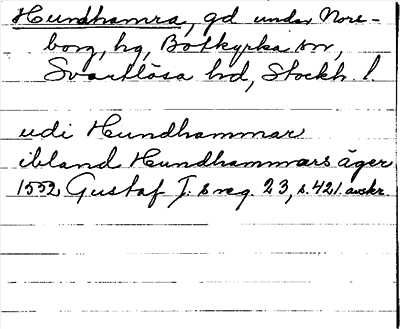 Hundhamra, gd under Nore-
borg, hg, Botkyrka sn,
Svartlösa hd, Stockh. l.
udi Hundhammar
ibland Hundhammars äger
1552 Gustaf I:s reg. 23, s. 421. avskr.